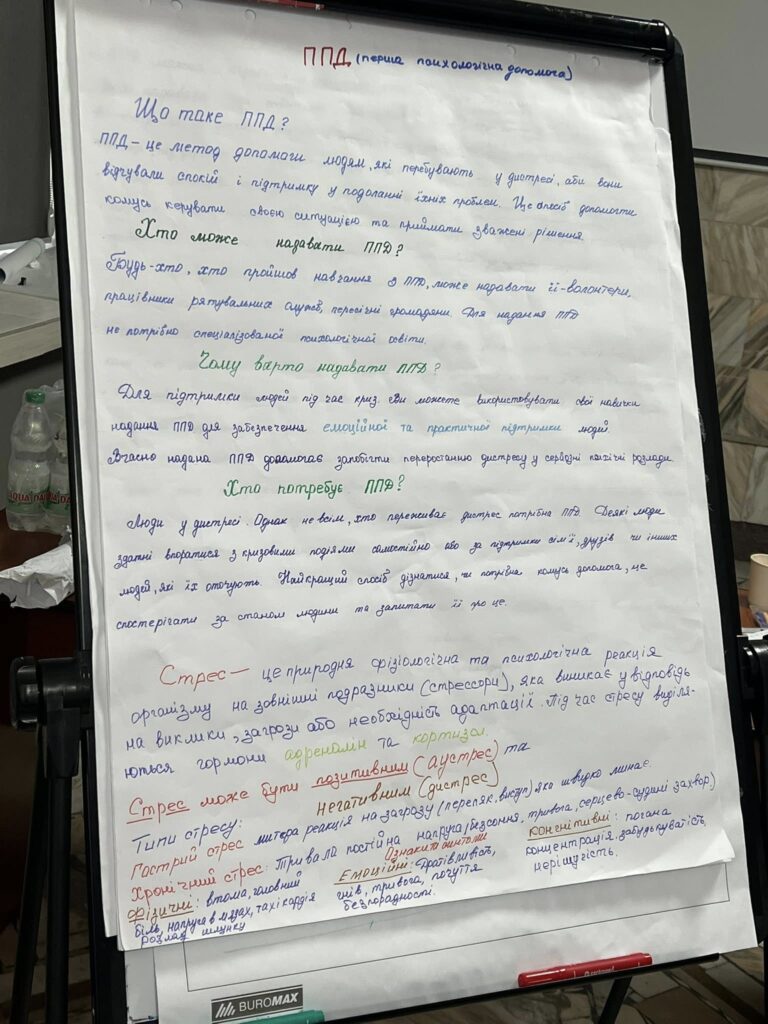 ППД (перша психологічна допомога)
Що таке ППД?
ППД – це метод допомоги людям, які перебувають у дистресі, аби вони
відчували спокій і підтримку у подоланні їхніх проблем. Це спосіб допомогти
комусь керувати своєю ситуацією та приймати зважені рішення.
Хто може надавати ППД?
Будь-хто, хто пройшов навчання з ППД, може надавати її - волонтери,
працівники рятувальних служб, пересічні громадяни. Для надання ППД
не потрібно спеціалізованої психологічної освіти.
Чому варто надавати ППД?
Для підтримки людей під час криз. Ви можете використовувати свої навички
надання ППД для забезпечення емоційної та практичної підтримки людей.
Вчасно надана ППД допомагає запобігти переростанню дистресу у серйозні психічні розлади
Хто потребує ППД?
Люди у дистресі. Однак не всім, хто переживає дистрес потрібна ППД. Деякі люди
здатні впоратися з кризовими подіями самостійно або за підтримки сім'ї, друзів чи інших
людей, які їх оточують. Найкращий спосіб дізнатися, чи потрібна комусь допомога, це
спостерігати за станом людини та запитати її про це.
Стрес – це природня фізіологічна та психологічна реакція
організму на зовнішні подразники (стрессори), яка виникає у відповідь
на виклики, загрози або необхідність адаптації. Під час стресу виділя-
ються гормони адреналін та кортизол.
Стрес може бути позитивним (аустрес) та
негативним (дистрес)
Типи стресу:
Гострий стрес миттєва реакція на загрозу (переляк, виступ) яка швидко минає.
Хронічний стрес: тривала постійна напруга (безсоння, тривога, серцево-судинні захвор.)
Ознаки
Фізичні: втома, головний
біль, напруга в мязах, тахікардія
розлад шлунку
Емоційні: дратівливість,
гнів, тривога, почуття
безпорадності.
Когнітивні: погана
концентрація, забудькуватість,
нерішучість.
BUROMAX